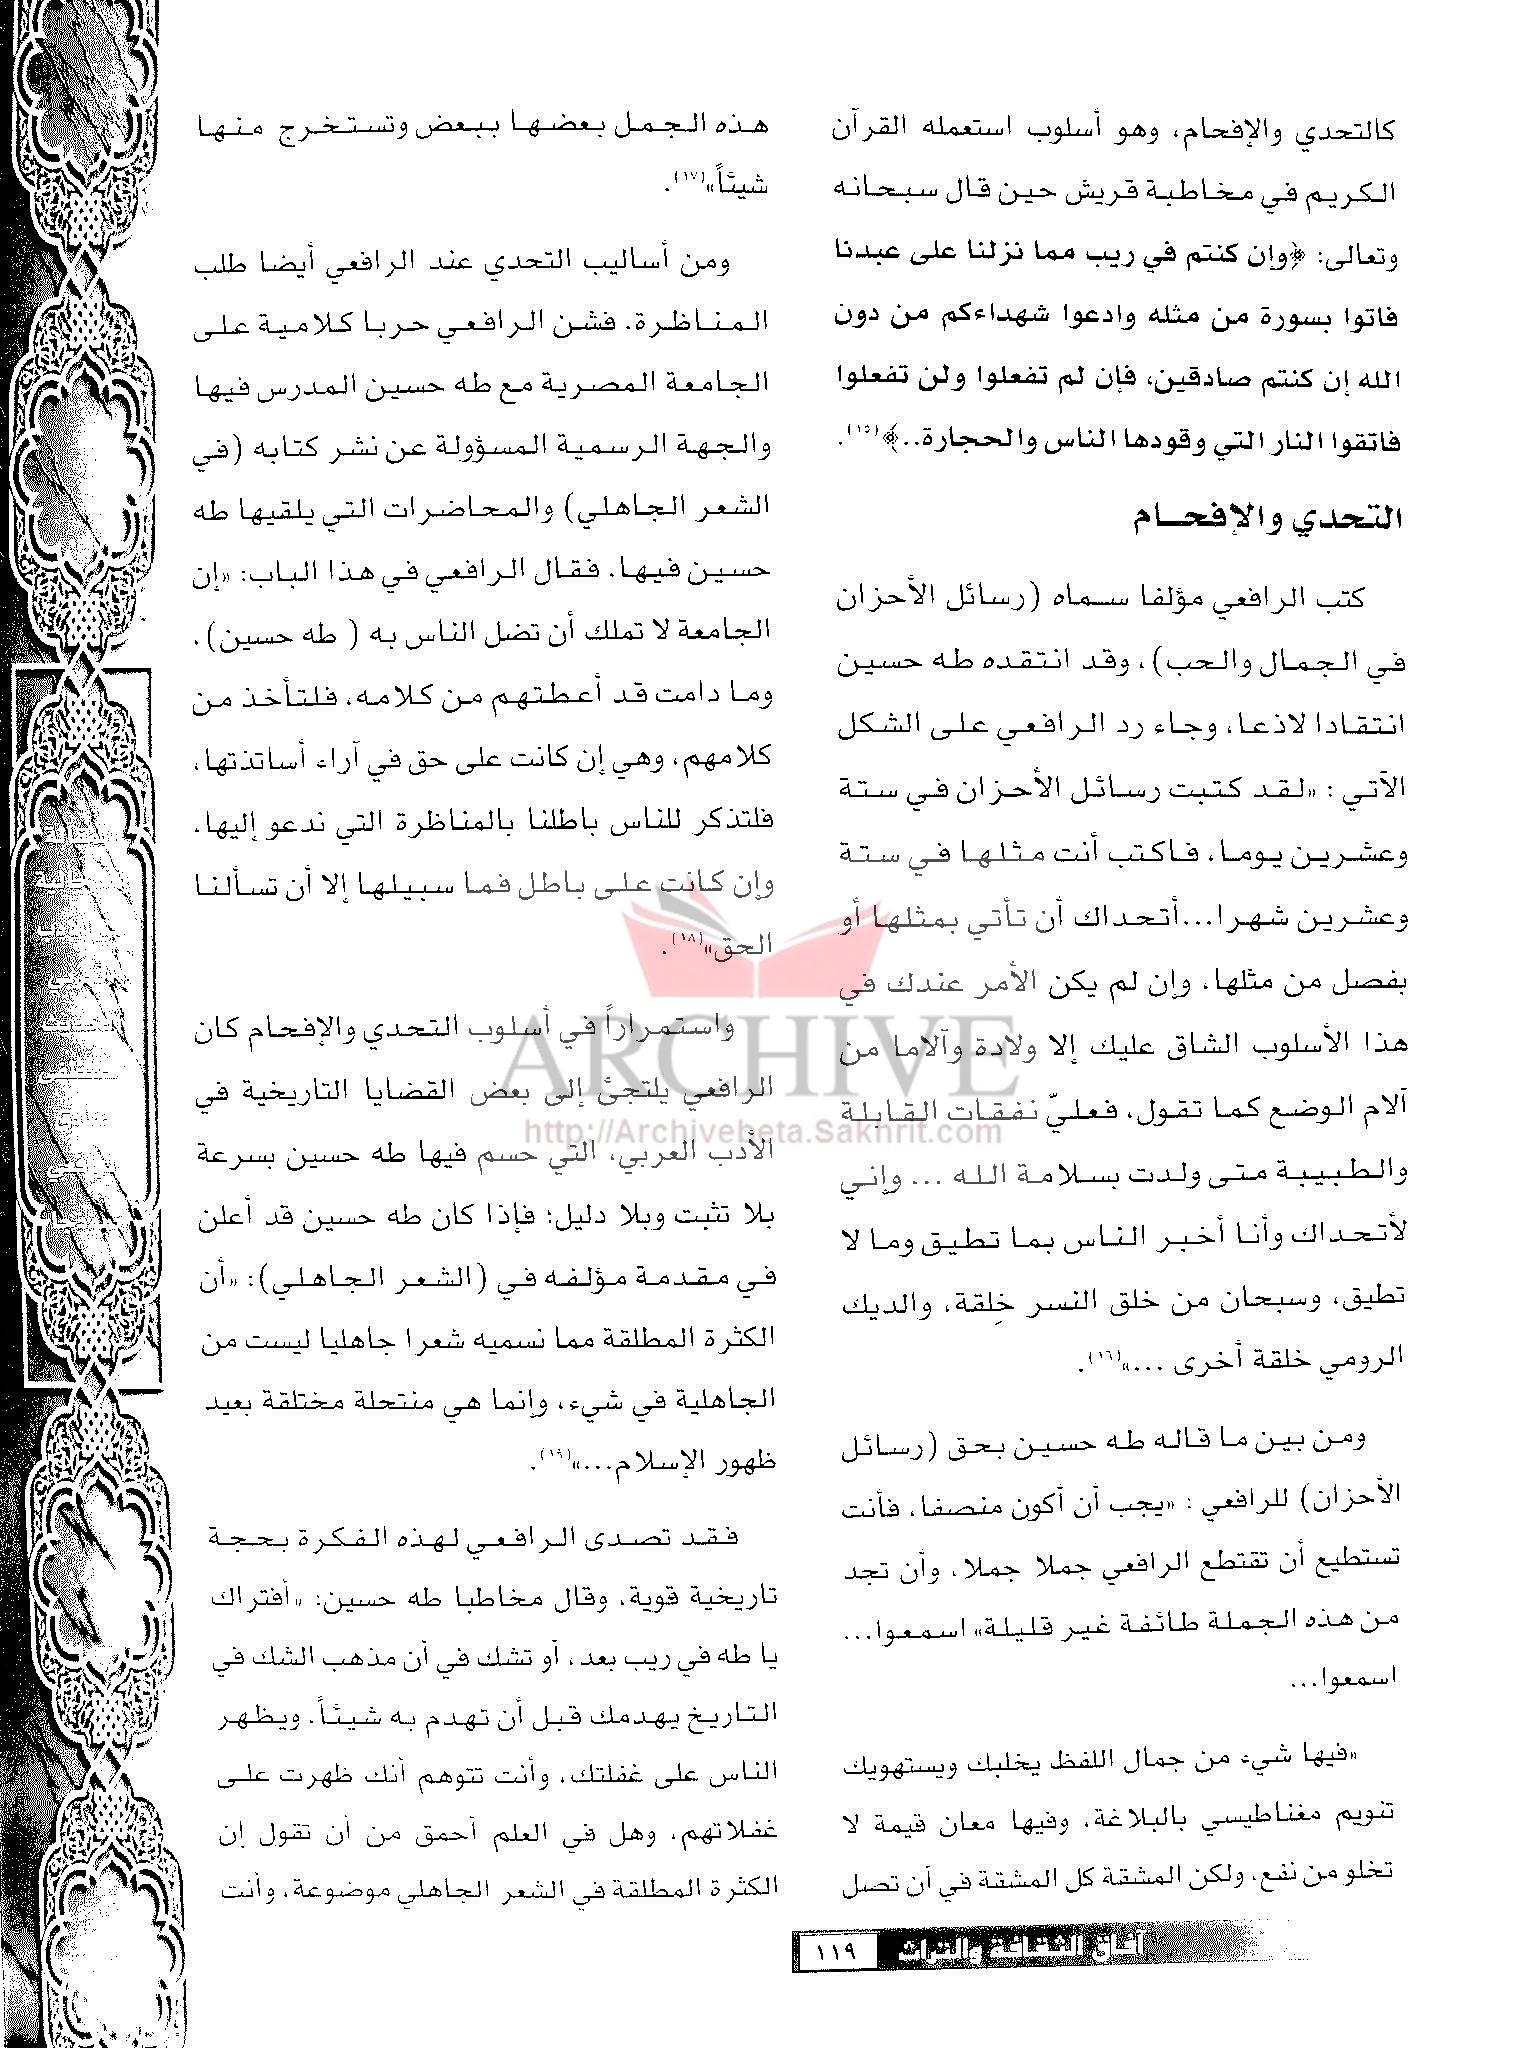 كالتحدي والإفحام، وهو أسلوب استعمله القرآن
الكريم في مخاطبة قريش حين قال سبحانه
وتعالى: ﴿وإن كنتم في ريب مما نزلنا على عبدنا
فاتوا بسورة من مثله وادعوا شهداءكم من دون
الله إن كنتم صادقين، فإن لم تفعلوا ولن تفعلوا
فاتقوا النار التي وقودها الناس والحجارة..﴾(١٥).
التحدي والإفحام
كتب الرافعي مؤلفا سماه (رسائل الأحزان
في الجمال والحب)، وقد انتقده طه حسين
انتقادا لاذعا، وجاء رد الرافعي على الشكل
الآتي : «لقد كتبت رسائل الأحزان في ستة
وعشرين يوما، فاكتب أنت مثلها في ستة
وعشرين شهرا...أتحداك أن تأتي بمثلها أو
بفصل من مثلها، وإن لم يكن الأمر عندك في
هذا الأسلوب الشاق عليك إلا ولادة وآلاما من
آلام الوضع كما تقول، فعليّ نفقات القابلة
والطبيبة متى ولدت بسلامة الله ... وإني
لأتحداك وأنا أخبر الناس بما تطيق وما لا
تطيق، وسبحان من خلق النسر خِلقة، والديك
الرومي خلقة أخرى ...»(١٦).
ومن بين ما قاله طه حسين بحق (رسائل
الأحزان) للرافعي : «يجب أن أكون منصفا، فأنت
تستطيع أن تقتطع الرافعي جملا جملا، وأن تجد
من هذه الجملة طائفة غير قليلة» اسمعوا...
اسمعوا...
«فيها شيء من جمال اللفظ يخلبك ويستهويك
تنويم مغناطيسي بالبلاغة، وفيها معان قيمة لا
تخلو من نفع، ولكن المشقة كل المشقة في أن تصل
هذه الجمل بعضها ببعض وتستخرج منها
شيئاً»(١٧).
ومن أساليب التحدي عند الرافعي أيضا طلب
المناظرة، فشن الرافعي حربا كلامية على
الجامعة المصرية مع طه حسين المدرس فيها
والجهة الرسمية المسؤولة عن نشر كتابه (في
الشعر الجاهلي) والمحاضرات التي يلقيها طه
حسين فيها، فقال الرافعي في هذا الباب: «إن
الجامعة لا تملك أن تضل الناس به ( طه حسين)،
وما دامت قد أعطتهم من كلامه، فلتأخذ من
كلامهم، وهي إن كانت على حق في آراء أساتذتها،
فلتذكر للناس باطلنا بالمناظرة التي ندعو إليها،
وإن كانت على باطل فما سبيلها إلا أن تسألنا
الحق»(١٨).
واستمراراً في أسلوب التحدي والإفحام كان
الرافعي يلتجئ إلى بعض القضايا التاريخية في
الأدب العربي، التي حسم فيها طه حسين بسرعة
بلا تثبت وبلا دليل؛ فإذا كان طه حسين قد أعلن
في مقدمة مؤلفه في (الشعر الجاهلي): «أن
الكثرة المطلقة مما نسميه شعرا جاهليا ليست من
الجاهلية في شيء، وإنما هي منتحلة مختلقة بعيد
ظهور الإسلام...»(١٩).
فقد تصدى الرافعي لهذه الفكرة بحجة
تاريخية قوية، وقال مخاطبا طه حسين: «أفتراك
يا طه في ريب بعد، أو تشك في أن مذهب الشك في
التاريخ يهدمك قبل أن تهدم به شيئاً، ويظهر
الناس على غفلتك، وأنت تتوهم أنك ظهرت على
غفلاتهم، وهل في العلم أحمق من أن تقول إن
الكثرة المطلقة في الشعر الجاهلي موضوعة، وأنت
ARCHIVE
http://Archivebeta.Sakhrit.com
آفاق الثقافة والتراث ١١٩